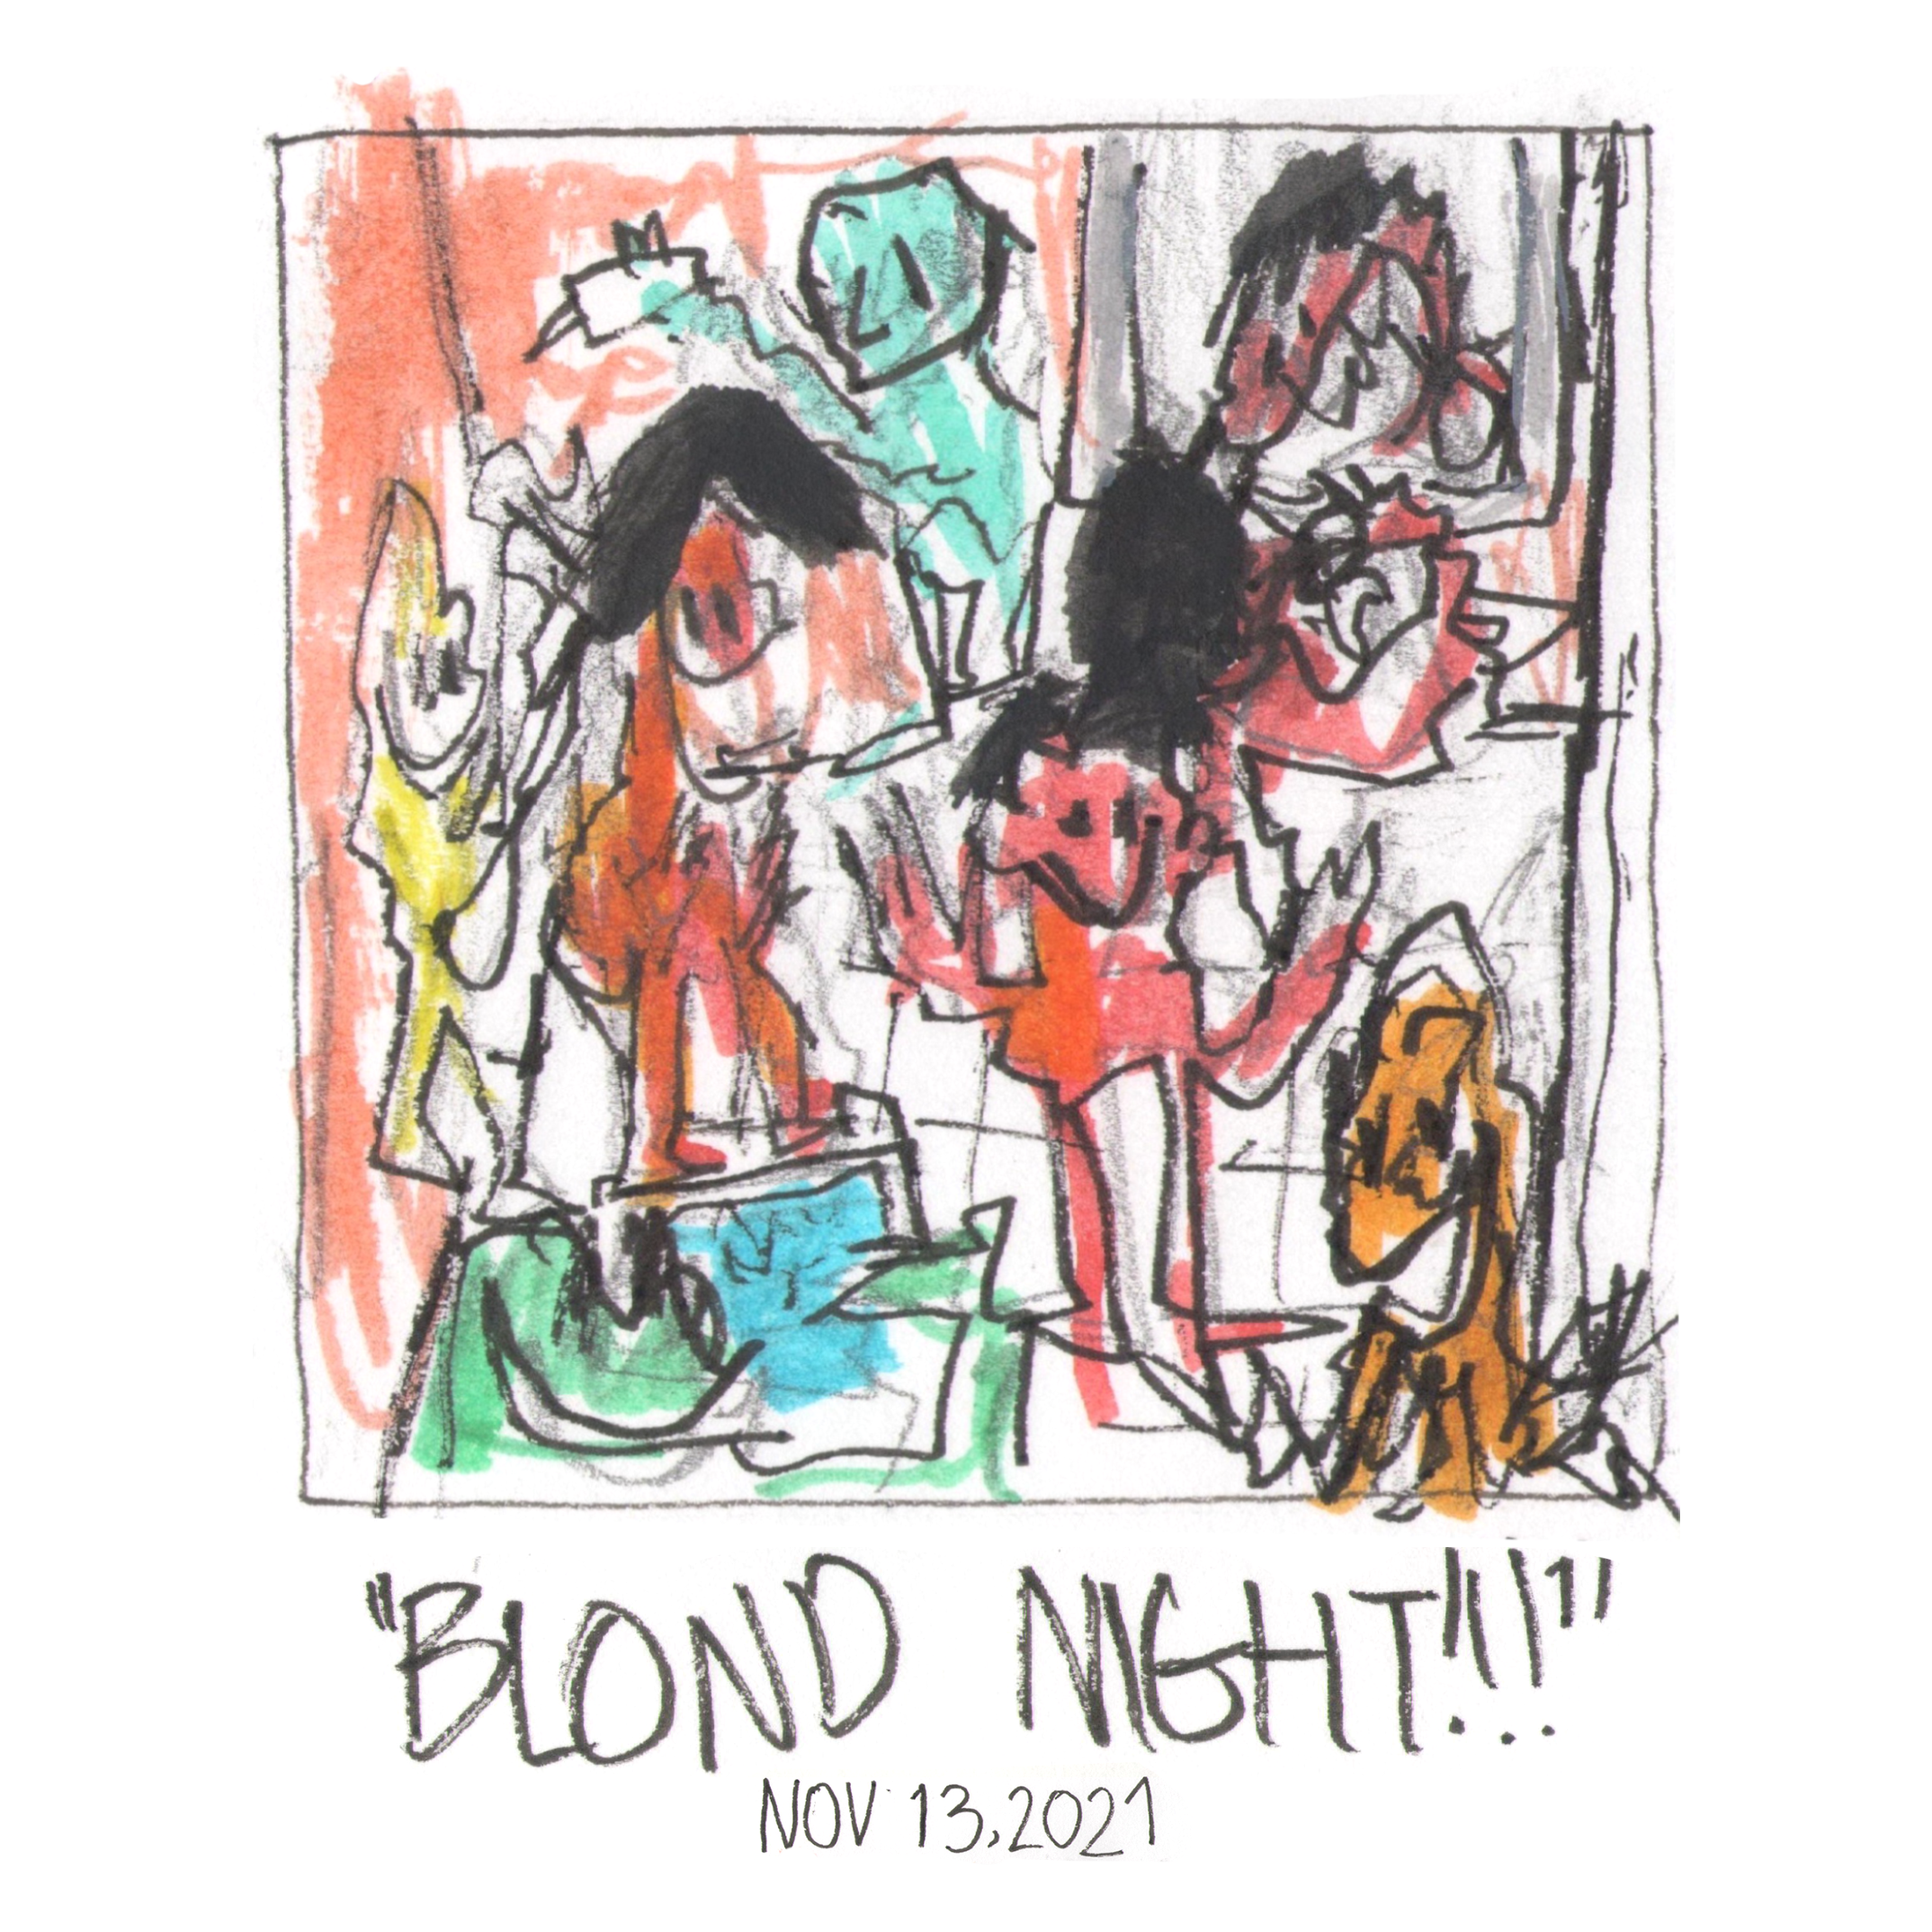 "BLOND NIGHT!!!"
NOV 13,2021